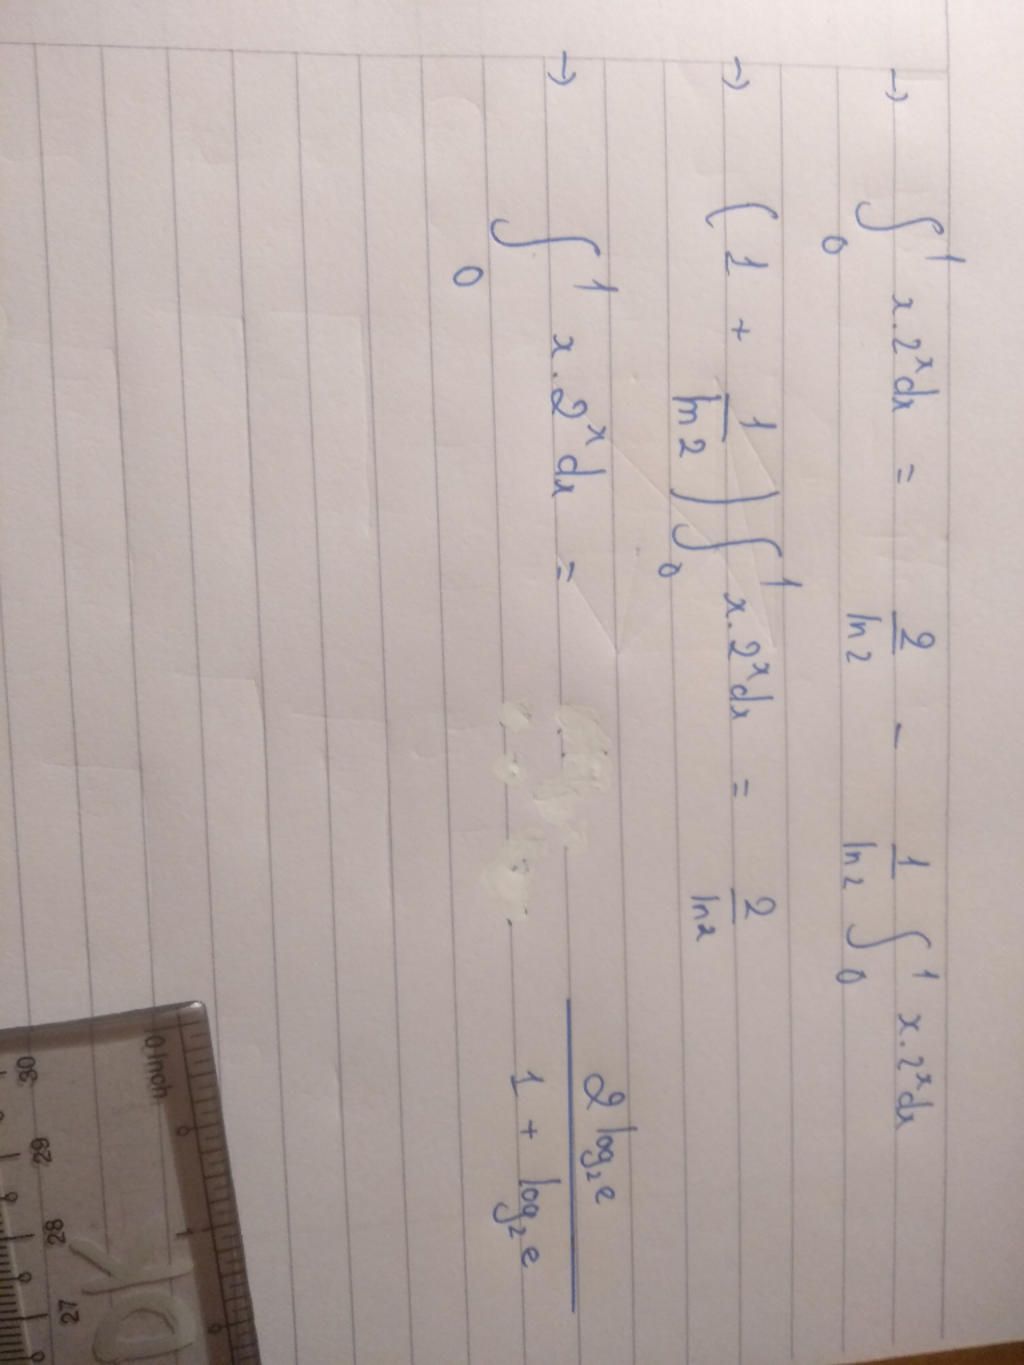 → ∫₀¹ x.2ˣdx = 2/ln2 - 1/ln2 ∫₀¹ x.2ˣdx
→ (1 + 1/ln2) ∫₀¹ x.2ˣdx = 2/ln2
→ ∫₀¹ x.2ˣdx = 2 log₂e / 1 + log₂e
0 Inch
30 29 28 27
DK